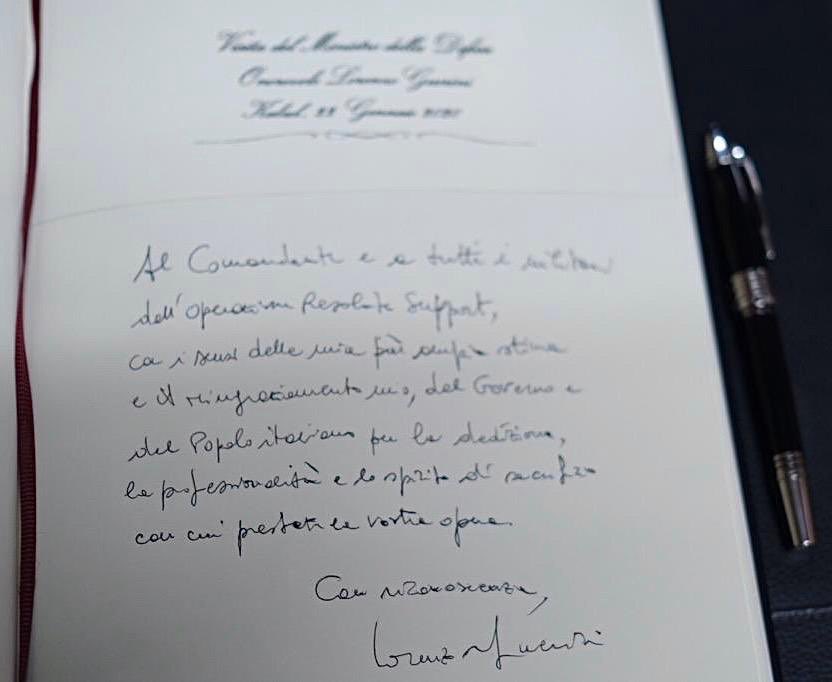 Visita del Ministro della Difesa
Onorevole Lorenzo Guerini
Kabul, 22 Gennaio 2020
Al Comandante e a tutti i militari
dell'operazione Resolute Support,
con i sensi della mia più ampia stima
e il ringraziamento mio, del Governo e
del Popolo italiano per la dedizione,
la professionalità e lo spirito di sacrificio
con cui prestate la vostra opera.
Con riconoscenza,
Lorenzo Guerini